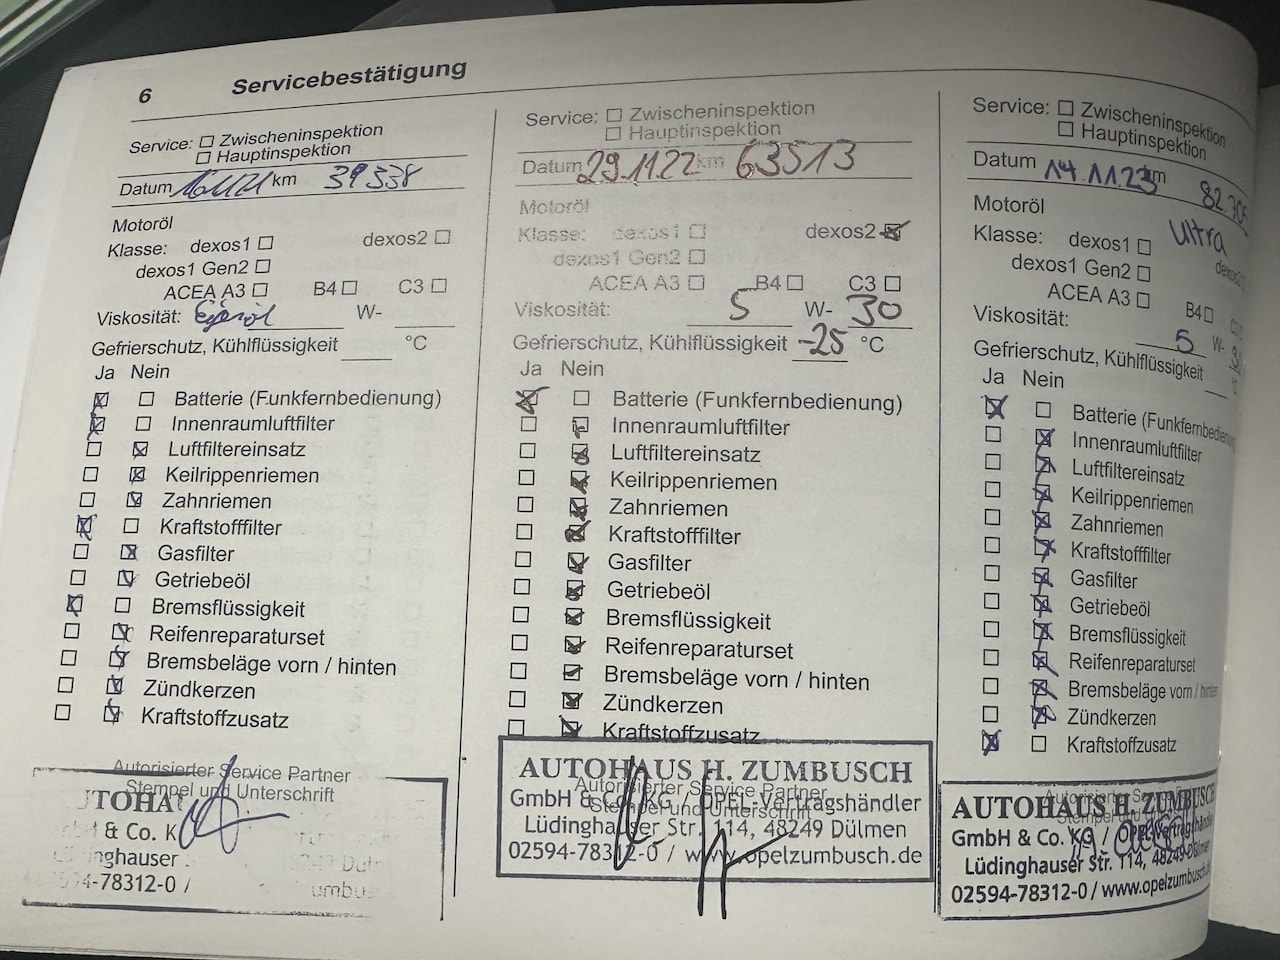 6 Servicebestätigung
Service: ☐ Zwischeninspektion
☐ Hauptinspektion
Datum 16.11.21 km 39338
Motoröl
Klasse: dexos1 ☐ dexos2 ☐
dexos1 Gen2 ☐
ACEA A3 ☐ B4 ☐ C3 ☐
Viskosität: W-
Gefrierschutz, Kühlflüssigkeit °C
Ja Nein
☒ ☐ Batterie (Funkfernbedienung)
☒ ☐ Innenraumluftfilter
☐ ☒ Luftfiltereinsatz
☐ ☒ Keilrippenriemen
☐ ☒ Zahnriemen
☒ ☐ Kraftstofffilter
☐ ☒ Gasfilter
☐ ☒ Getriebeöl
☒ ☐ Bremsflüssigkeit
☐ ☒ Reifenreparaturset
☐ ☒ Bremsbeläge vorn / hinten
☐ ☒ Zündkerzen
☐ ☒ Kraftstoffzusatz
Autorisierter Service Partner
Stempel und Unterschrift
& Co. K
inghauser
-78312-0 /
Service: ☐ Zwischeninspektion
☐ Hauptinspektion
Datum 29.11.22 km 63513
Motoröl
Klasse: dexos1 ☐ dexos2 ☒
dexos1 Gen2 ☐
ACEA A3 ☐ B4 ☐ C3 ☐
Viskosität: 5 W- 30
Gefrierschutz, Kühlflüssigkeit -25 °C
Ja Nein
☒ ☐ Batterie (Funkfernbedienung)
☐ ☒ Innenraumluftfilter
☐ ☒ Luftfiltereinsatz
☐ ☒ Keilrippenriemen
☐ ☒ Zahnriemen
☐ ☒ Kraftstofffilter
☐ ☒ Gasfilter
☐ ☒ Getriebeöl
☐ ☒ Bremsflüssigkeit
☐ ☒ Reifenreparaturset
☐ ☒ Bremsbeläge vorn / hinten
☐ ☒ Zündkerzen
☐ ☒ Kraftstoffzusatz
Autorisierter Service Partner
Stempel und Unterschrift
AUTOHAUS H. ZUMBUSCH
GmbH & Co. KG / OPEL-Vertragshändler
Lüdinghauser Str. 114, 48249 Dülmen
02594-78312-0 / www.opelzumbusch.de
Service: ☐ Zwischeninspektion
☐ Hauptinspektion
Datum 14.11.23 km 82.705
Motoröl Ultra
Klasse: dexos1 ☐ dexos2
dexos1 Gen2 ☐
ACEA A3 ☐ B4 ☐ C3
Viskosität: 5 W-
Gefrierschutz, Kühlflüssigkeit °C
Ja Nein
☒ ☐ Batterie (Funkfernbedienung)
☐ ☒ Innenraumluftfilter
☐ ☒ Luftfiltereinsatz
☐ ☒ Keilrippenriemen
☐ ☒ Zahnriemen
☐ ☒ Kraftstofffilter
☐ ☒ Gasfilter
☐ ☒ Getriebeöl
☐ ☒ Bremsflüssigkeit
☐ ☒ Reifenreparaturset
☐ ☒ Bremsbeläge vorn / hinten
☐ ☒ Zündkerzen
☒ ☐ Kraftstoffzusatz
AUTOHAUS H. ZUMBUSCH
GmbH & Co. KG / OPEL-Vertragshändler
Lüdinghauser Str. 114, 48249 Dülmen
02594-78312-0 / www.opelzumbusch.de